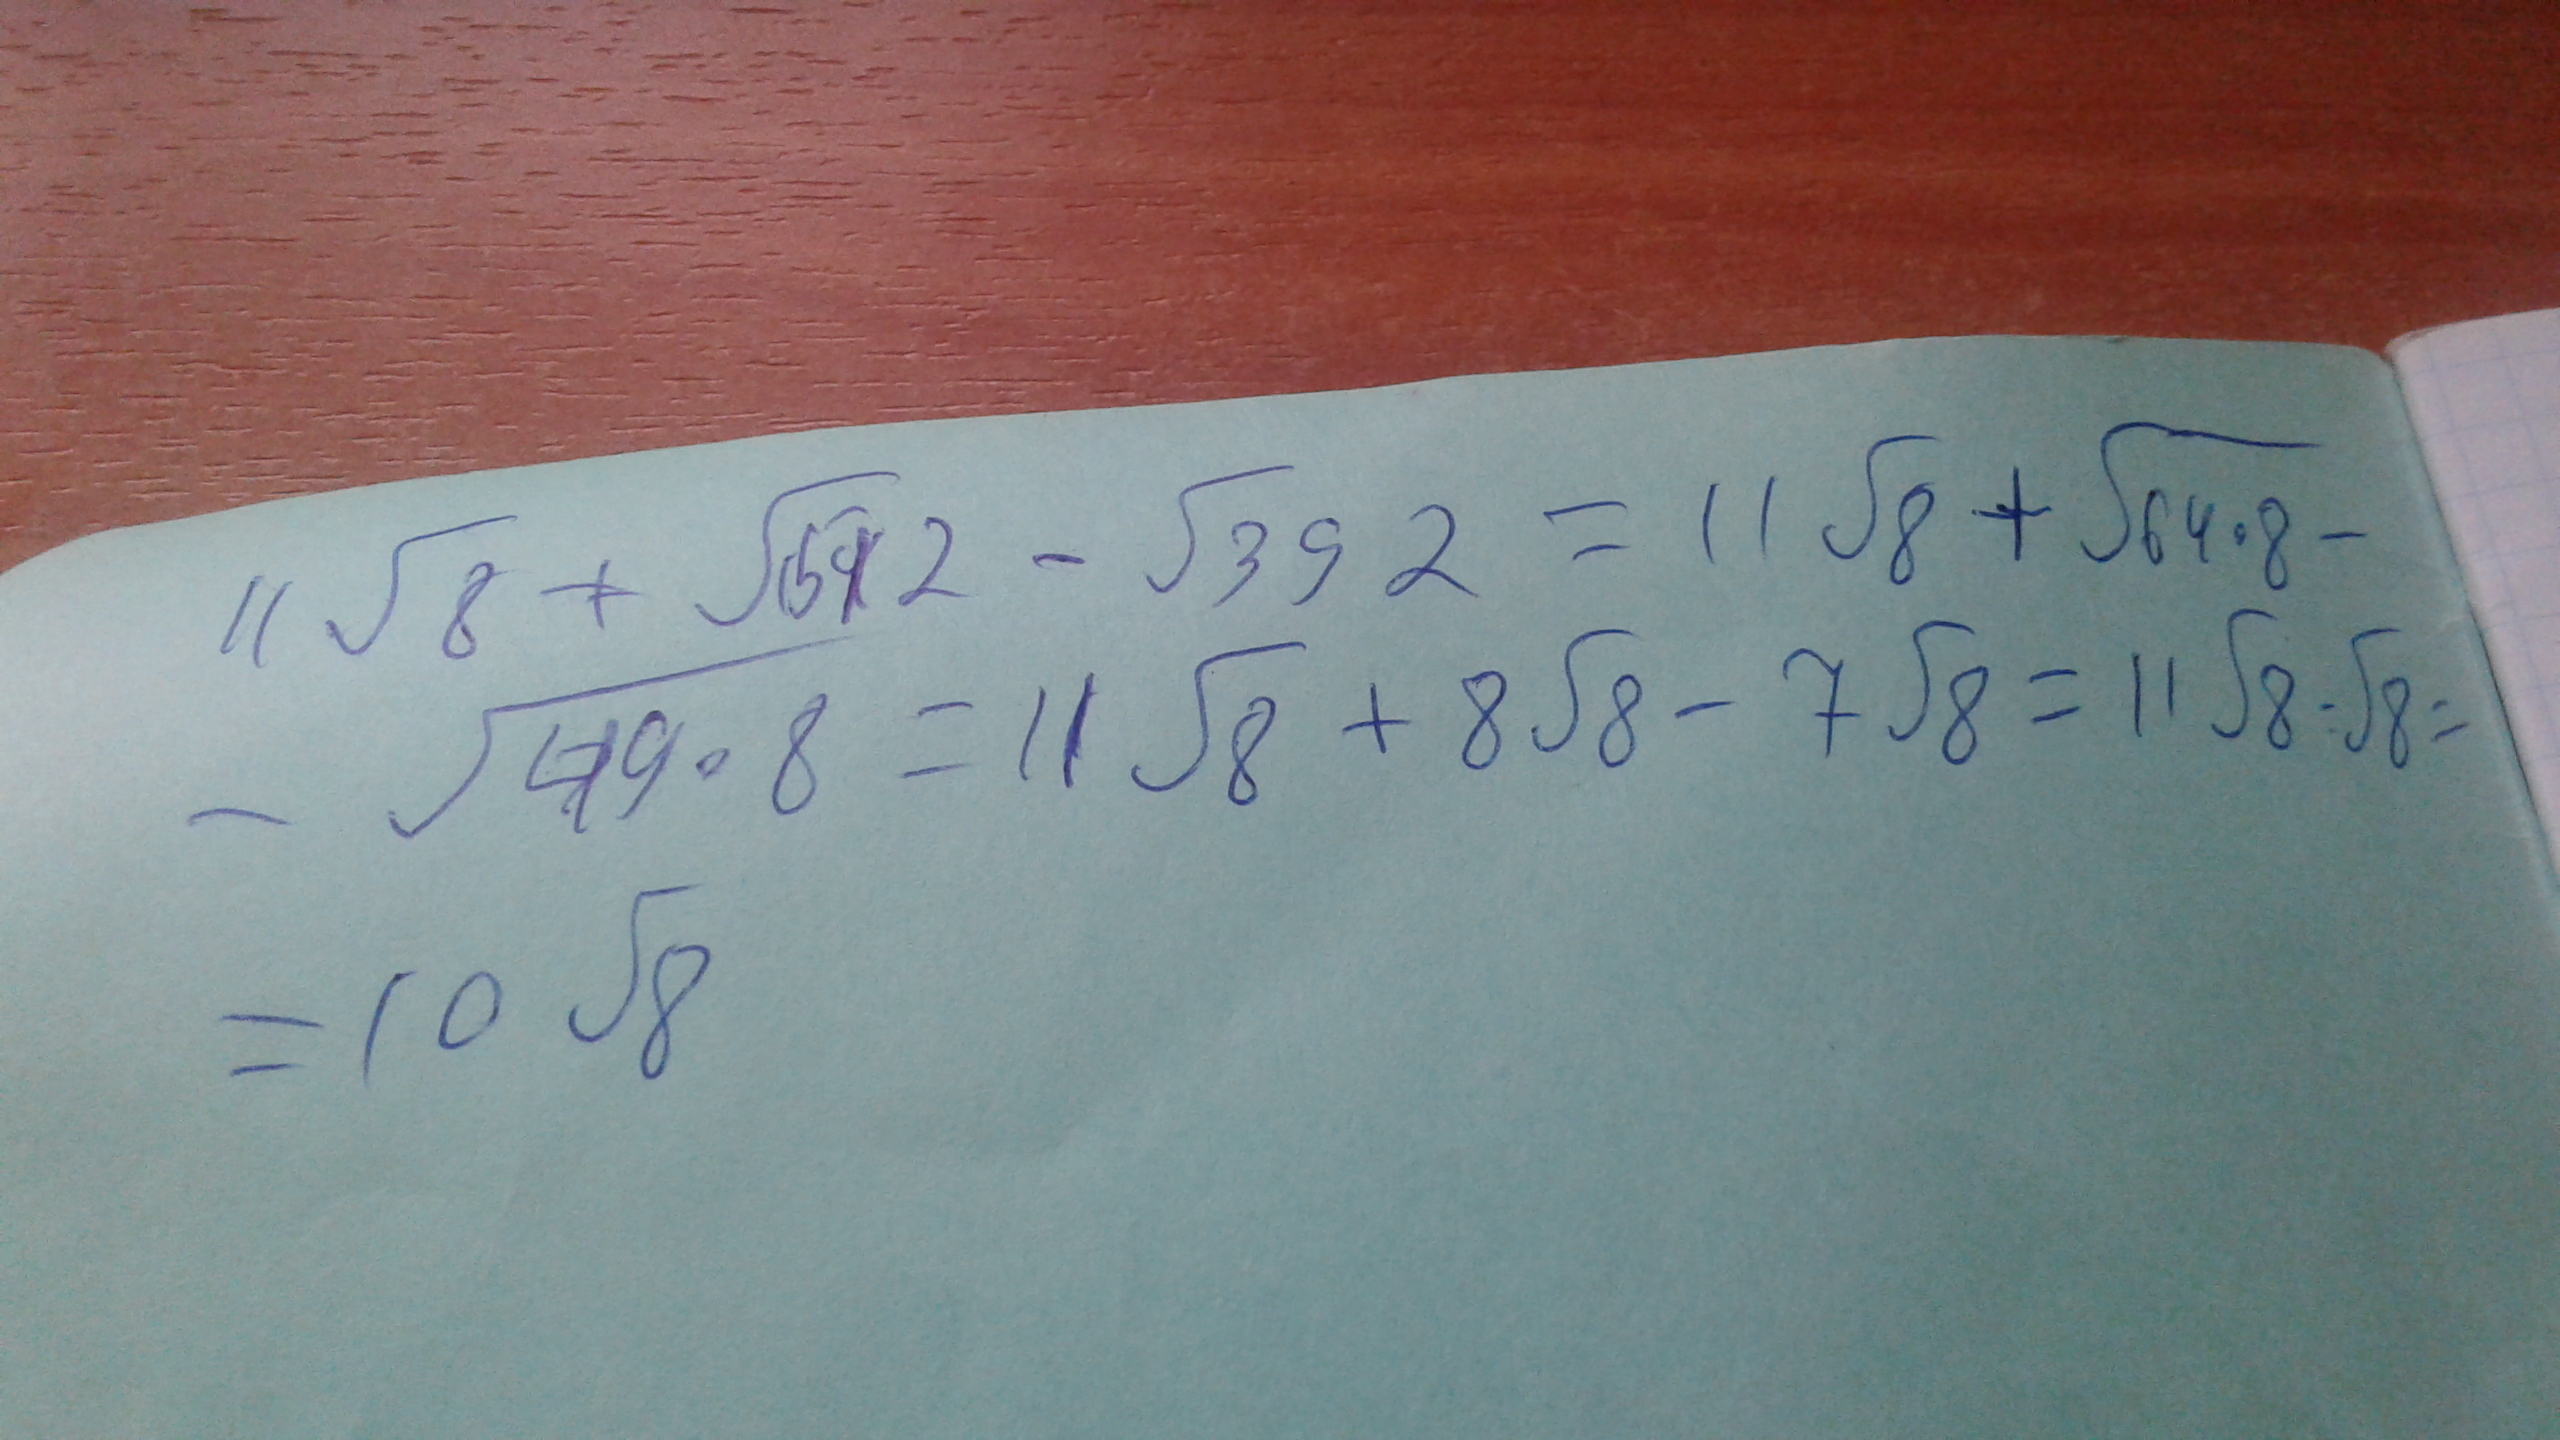 11√8 + √512 - √392 = 11√8 + √64·8 -
- √49·8 = 11√8 + 8√8 - 7√8 = 11√8 - √8 =
= 10√8